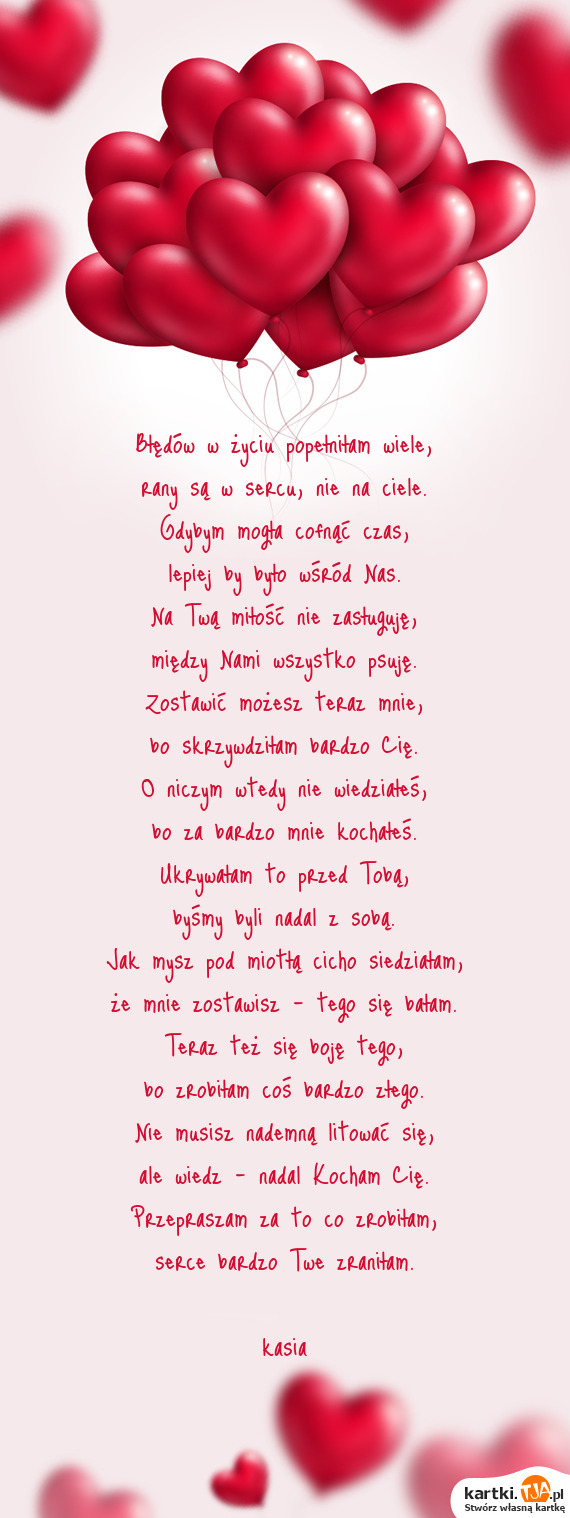 Błędów w życiu popełniłam wiele,
rany są w sercu, nie na ciele.
Gdybym mogła cofnąć czas,
lepiej by było wśród Nas.
Na Twą miłość nie zasługuję,
między Nami wszystko psuję.
Zostawić możesz teraz mnie,
bo skrzywdziłam bardzo Cię.
O niczym wtedy nie wiedziałeś,
bo za bardzo mnie kochałeś.
Ukrywałam to przed Tobą,
byśmy byli nadal z sobą.
Jak mysz pod miotłą cicho siedziałam,
że mnie zostawisz - tego się bałam.
Teraz też się boję tego,
bo zrobiłam coś bardzo złego.
Nie musisz nademną litować się,
ale wiedz - nadal Kocham Cię.
Przepraszam za to co zrobiłam,
serce bardzo Twe zraniłam.
kasia
kartki.TJA.pl
Stwórz własną kartkę